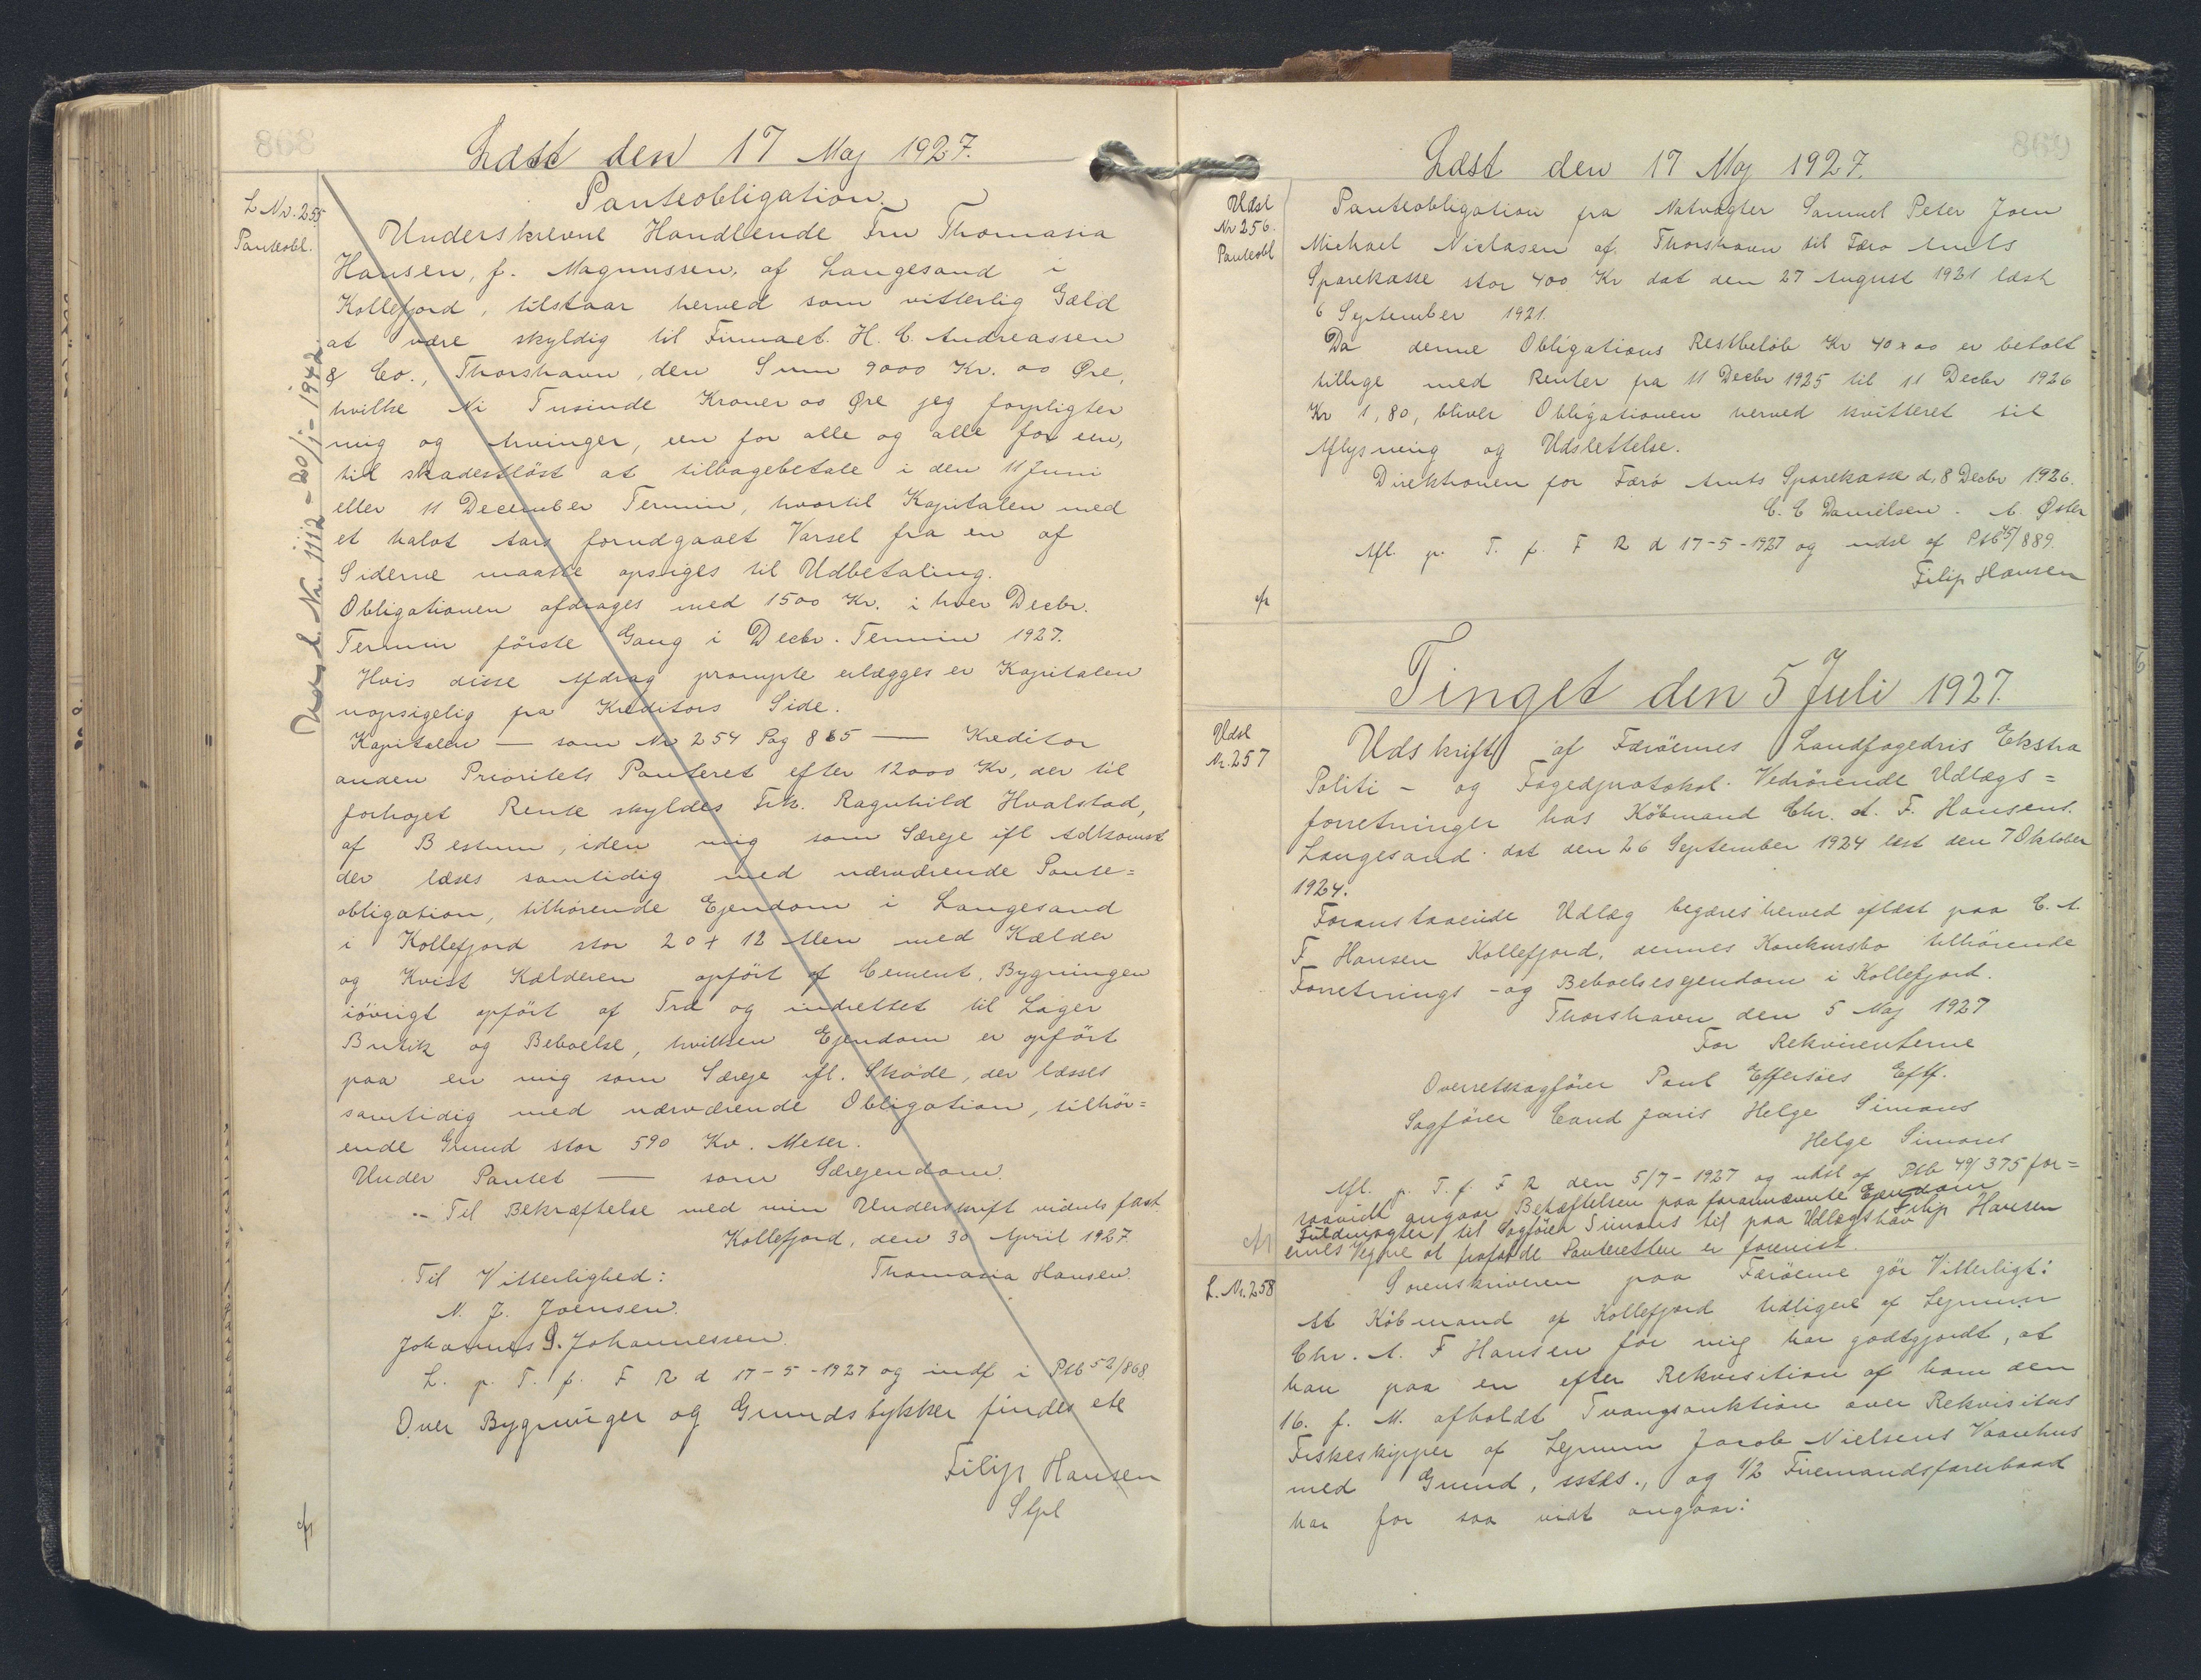 868
Læst den 17 Maj 1927.
L Nr. 255
Panteobl.
Udsl. Nr. 1112 - 20/1 - 1942.
Panteobligation.
Underskrevne Handlende Fru Thomasia
Hansen, f. Magnussen, af Langesand i
Kollefjord, tilstaar herved som vitterlig Gæld
at være skyldig til Firmaet. H. C. Andreassen
& Co., Thorshavn, den Sum 9000 Kr. 00 Øre,
hvilke Ni Tusinde Kroner 00 Øre jeg forpligter
mig og Arvinger, een for alle og alle for een,
til skadesløst at tilbagebetale i den 11 Juni
eller 11 December Termin, hvortil Kapitalen med
et halvt Aars forudgaaet Varsel fra en af
Siderne maatte opsiges til Udbetaling.
Obligationen afdrages med 1500 Kr. i hver Decbr.
Termin förste Gang i Decbr. Termin 1927.
Hvis disse Afdrag prompte erlægges er Kapitalen
uopsigelig fra Kreditors Side.
Kapitalen — som Nr 254 Pag 865 — Kreditor
anden Prioritets Panteret efter 12000 Kr, der til
forhøjet Rente skyldes Frk. Ragnhild Hvalstad,
af Bestum, i den mig som Særeje ifl Adkomst
der læses samtidig med nærværende Pante=
obligation, tilhörende Ejendom i Langesand
i Kollefjord stor 20 + 12 Alen med Kælder
og Kvist Kælderen opfört af Cement, Bygningen
iövrigt opfört af Træ og indrettet til Lager
Butik og Beboelse, hvilken Ejendom er opfört
paa en mig som Særeje ifl. Sköde, der læsses
samtidig med nærværende Obligation, tilhör=
ende Grund stor 590 Kv. Meter.
Under Pantet — som Særejendom.
- Til Bekræftelse med min Underskrift vidnes fast.
Kollefjord, den 30 April 1927.
Til Vitterlighed:
Thomasia Hansen.
N. J. Joensen.
Johannes S. Johannessen.
L. p. T. f. F R d 17-5-1927 og indf i Ptb 52/868
Over Bygninger og Grundstykker findes ete
Filip Hansen
Stpl
cfr
869
Læst den 17 Maj 1927.
Udsl
Nr 256.
Panteobl
Panteobligation fra Natvægter Samuel Peter Joen
Michael Niclasen af Thorshavn til Færø Amts
Sparekasse stor 400 Kr dat den 27 August 1921 læst
6 September 1921.
Da denne Obligations Restbelöb Kr 40 00 er betalt
tillige med Renter fra 11 Decbr 1925 til 11 Decbr 1926
Kr 1,80, bliver Obligationen herved kvitteret til
Aflysning og Udslettelse.
Direktionen for Færö Amts Sparekasse d. 8 Decbr 1926.
C. C Danielsen. A. Øster
Afl. p. T. f. F R d 17-5-1927 og udsl af Ptb 45/889.
Filip Hansen
cfr
Tinget den 5 Juli 1927.
Udsl
Nr. 257
Udskrift af Færöernes Landfogedris Ekstra
Politi - og Fogedprotokol. Vedrörende Udlægs=
forretninger hos Købmand Chr. A. F. Hansens.
Langesand dat den 26 September 1924 læst den 7 Oktober
1924.
Foranstaaende Udlæg begæres herved aflæst paa C. A.
F. Hansen Kollefjord, dennes Konkursbo tilhörende
Forretnings - og Beboelsesejendom i Kollefjord.
Thorshavn den 5 Maj 1927
For Rekvirenterne
Overretssagförer Poul Effersöes Eftf.
Sagförer Cand juris Helge Simons
Helge Simons
Afl. p. T. f. F R den 5/7 - 1927 og udsl af Ptb 49/375 for=
saavidt angaar Behæftelsen paa forannævnte Ejendom
Filip Hansen
Fuldmagter til Sagförer Simons til paa Udlægshav
ernes Vegne at frafalde Panteretten er forevist.
cfr
L. Nr. 258
Sorenskriveren paa Færöerne gör Vitterligt:
At Köbmand af Kollefjord tidligere af Lejnum
Chr. A. F Hansen for mig har godtgjordt, at
han paa en efter Rekvisition af ham den
16. f. M. afholdt Tvangsauktion over Rekvisitus
Fiskeskipper af Lejnum Jacob Nielsens Vaanhus
med Grund, sstds., og 1/2 Firemandsfarerbaad
har for saa vidt angaar: